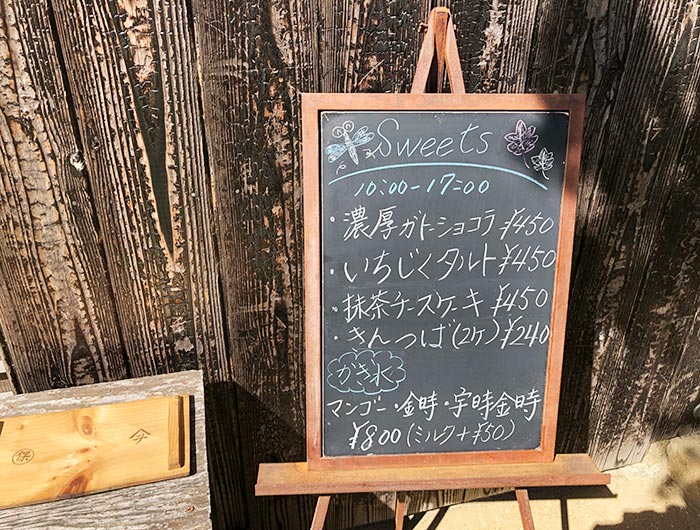 Sweets
10:00-17:00
・濃厚ガトーショコラ ¥450
・いちじくタルト ¥450
・抹茶チーズケーキ ¥450
・きんつば(2ケ) ¥240
かき氷
マンゴー・金時・宇時金時
¥800(ミルク+¥50)
保